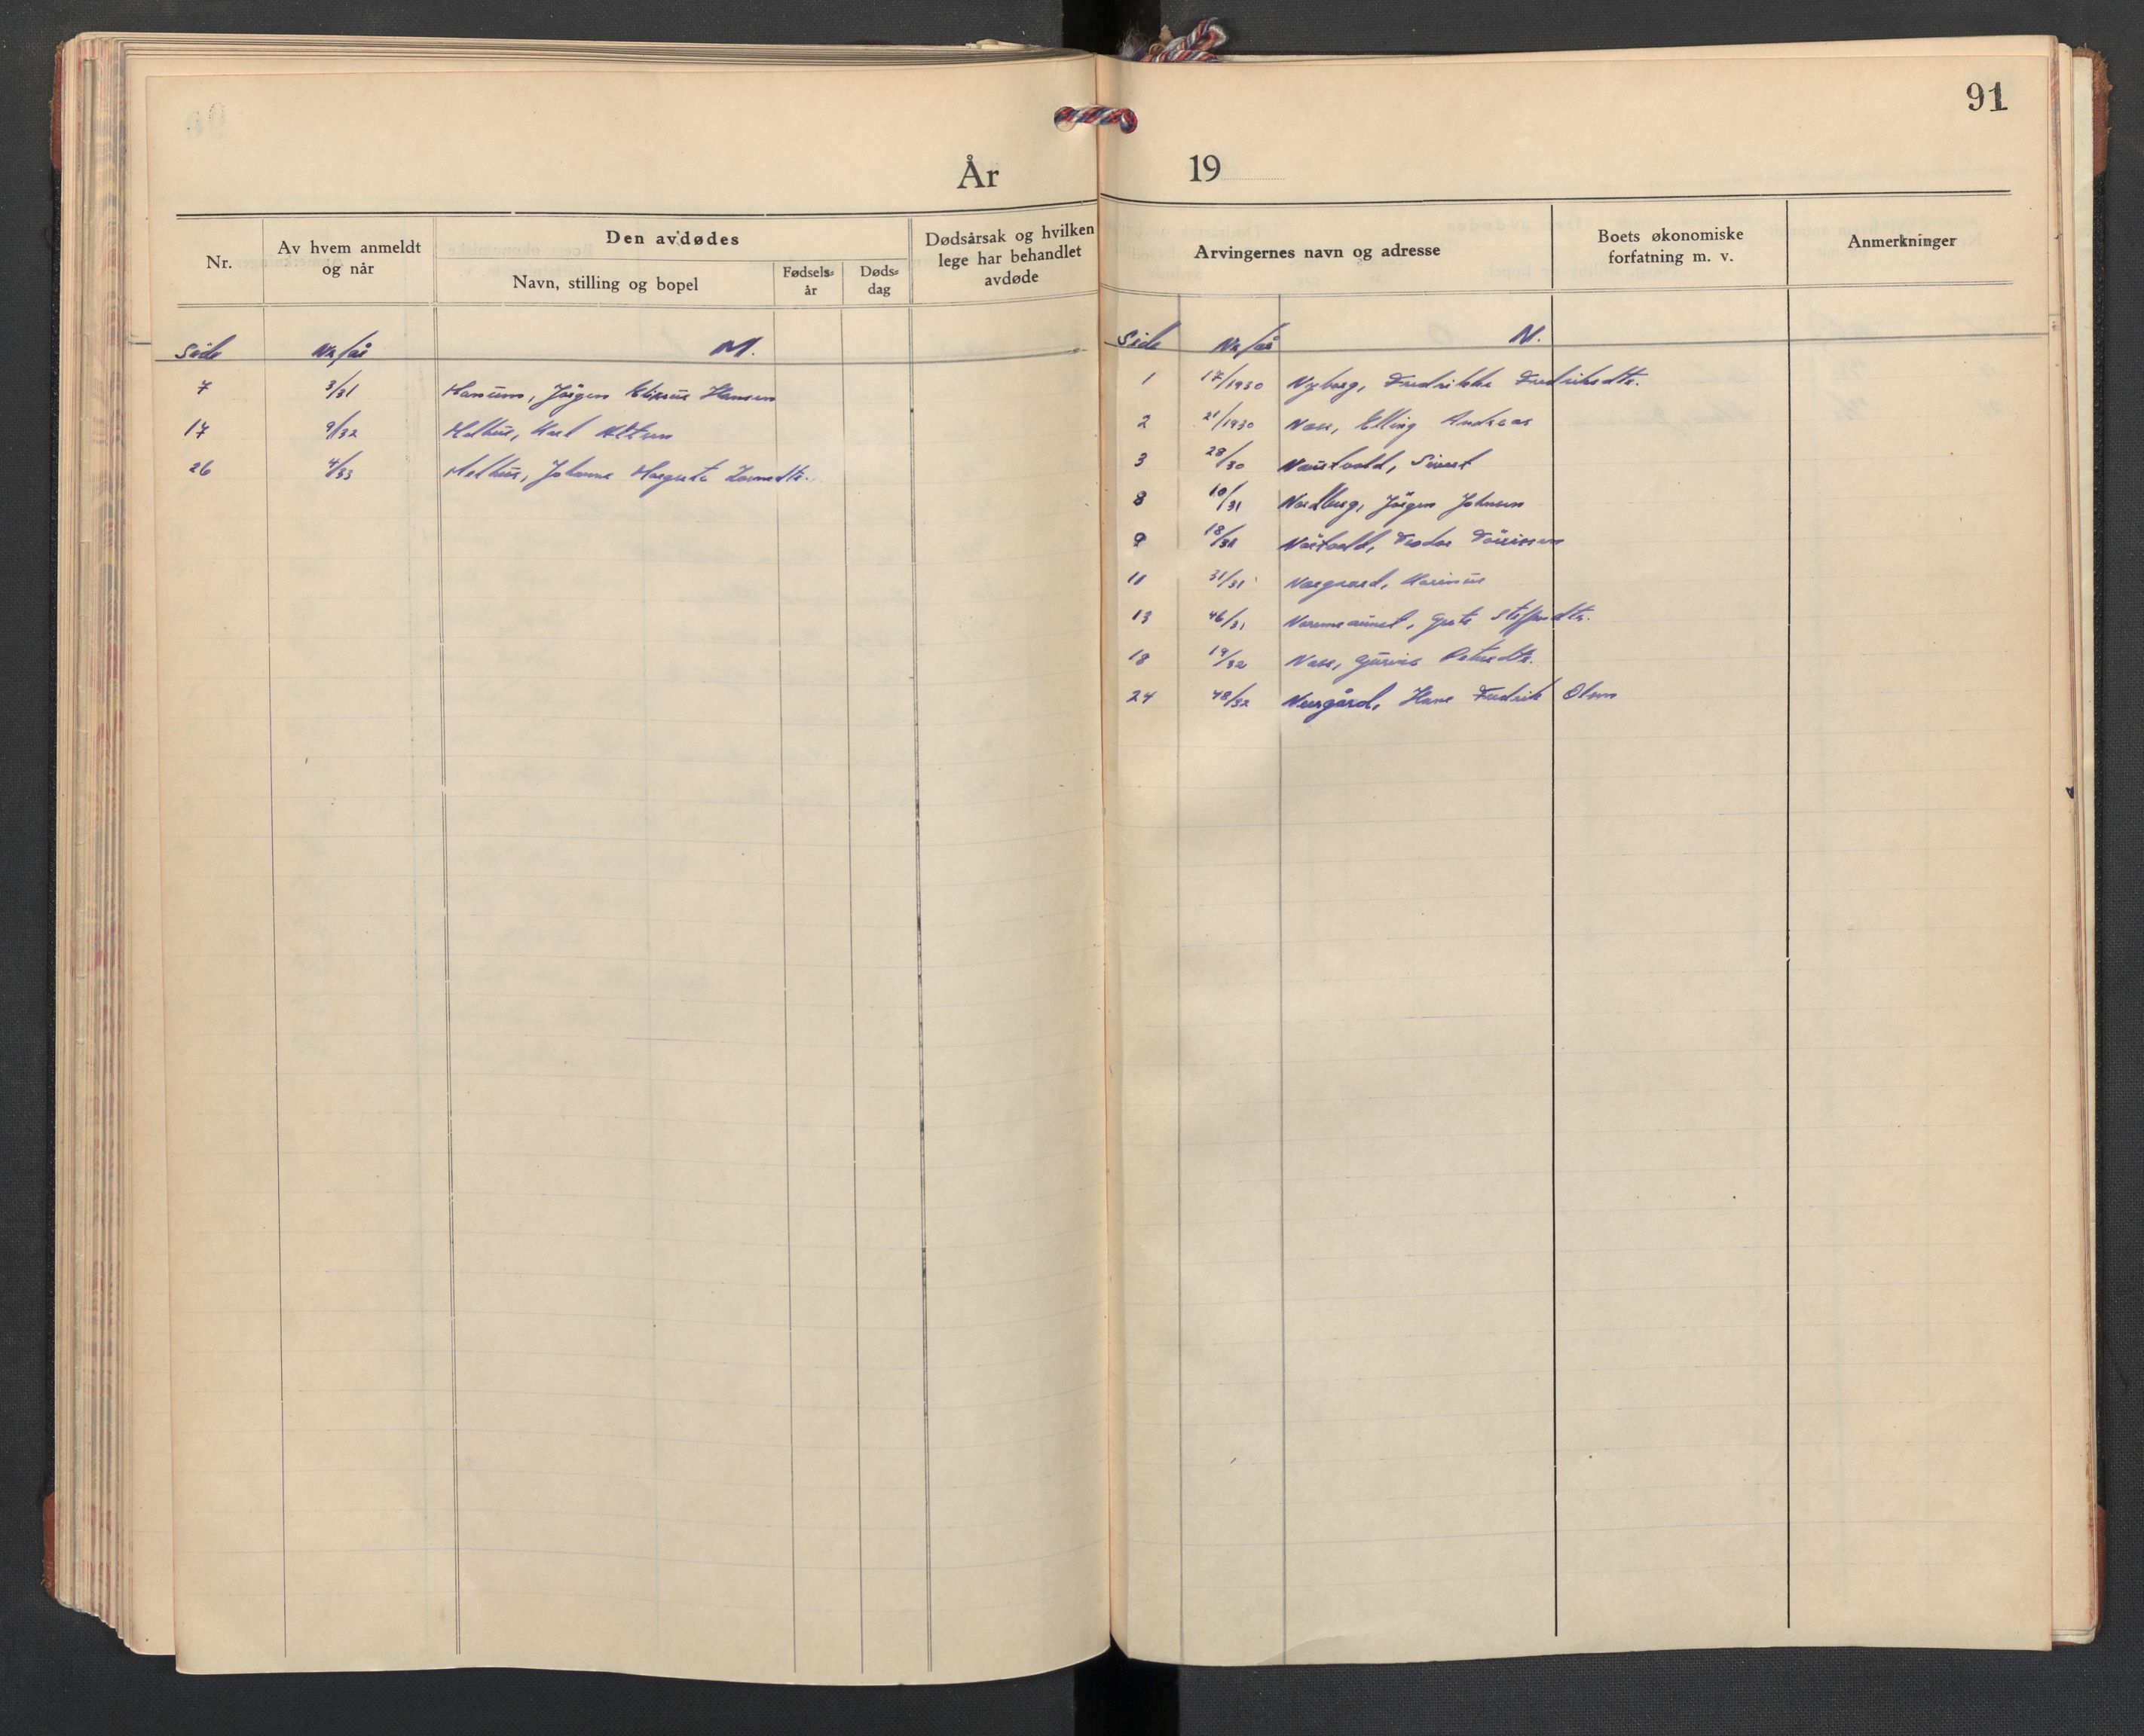 91
År 19
Nr.
Av hvem anmeldt
og når
Den avdødes
Navn, stilling og bopel
Fødsels-
år
Døds-
dag
Dødsårsak og hvilken
lege har behandlet
avdøde
Side Nr/år M.
7 3/31 Jörgen Hansen
17 9/32 Melhus, Karl
26 4/33 Melhus, Johanna Margrete
Arvingernes navn og adresse
Boets økonomiske
forfatning m. v.
Anmerkninger
Side Nr/år N.
1 17/1930 Nyborg, Fredrikke Fredriksdtr.
2 21/1930 Næss, Elling Andreas
3 28/30 Naustvold, Sivert
8 10/31 Nordberg, Jörgen Johnsen
9 18/31
11 31/31 Norgaard, Marinus
13 46/31 Grete
18 19/32 Næss, Petersdtr.
24 48/32 Neergård, Hans Fredrik Olsen